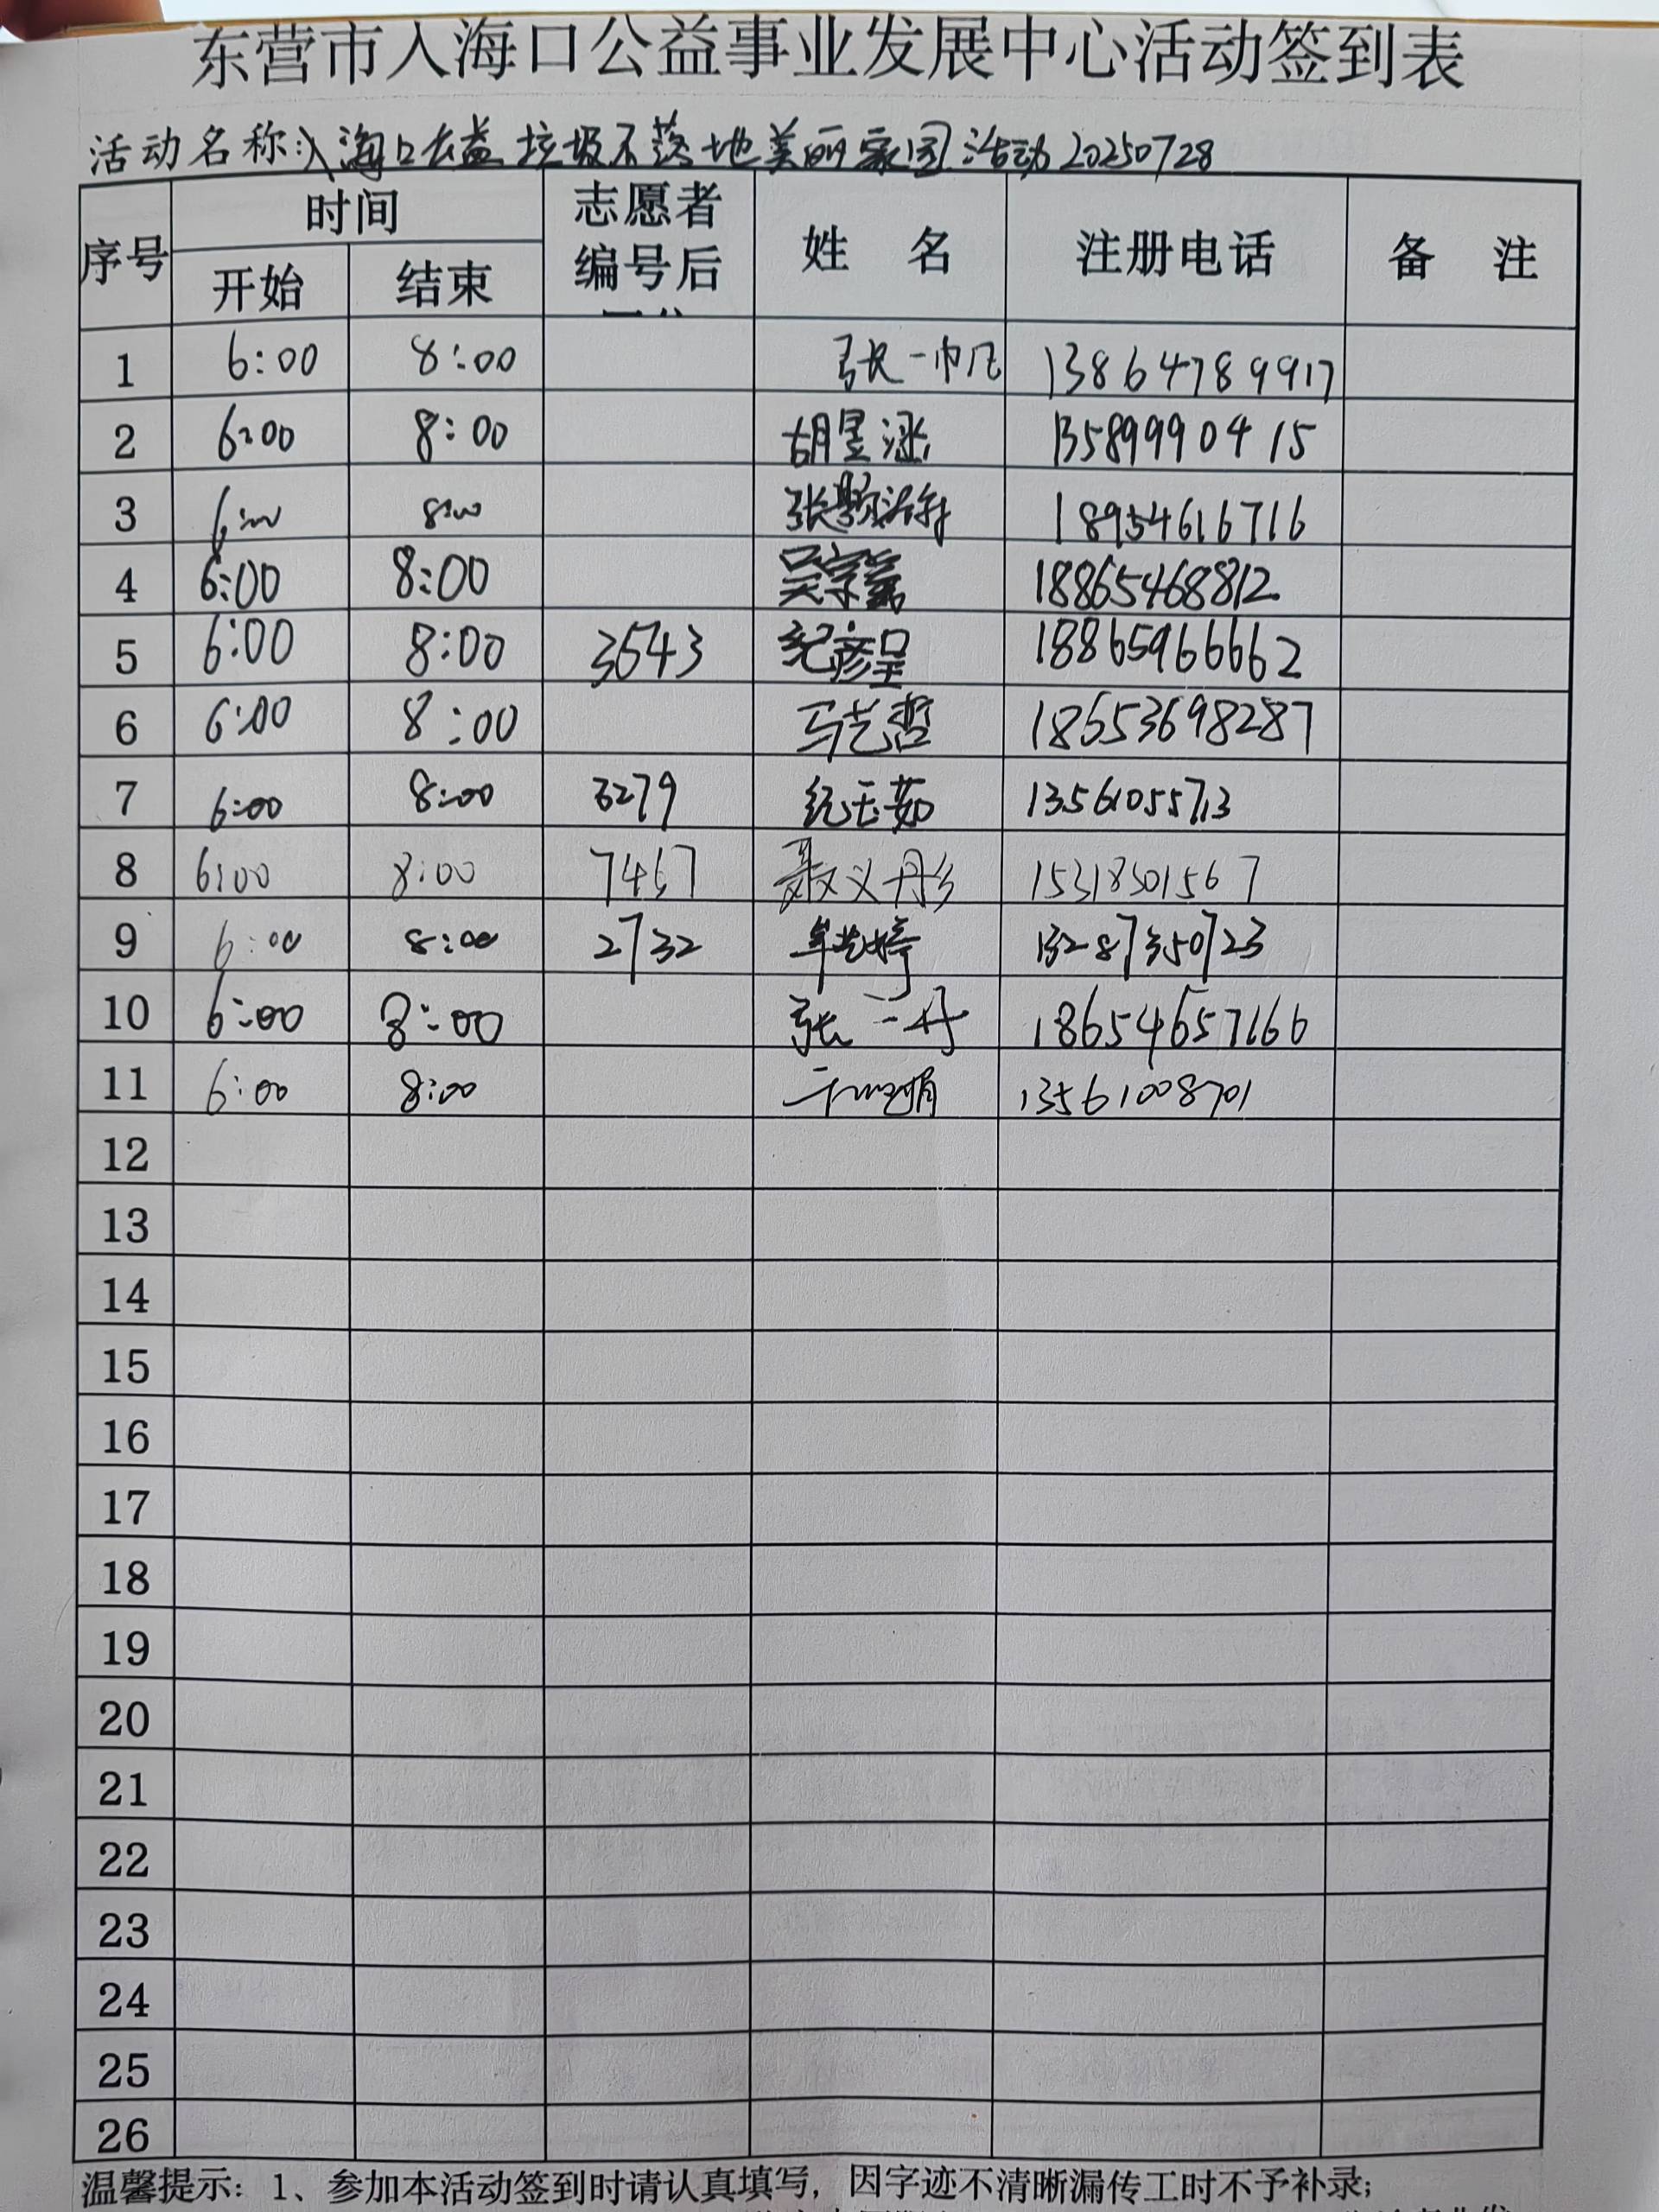 东营市入海口公益事业发展中心活动签到表
活动名称:入海口公益 垃圾不落地美丽家园活动20250728
序号 时间 志愿者编号后 姓 名 注册电话 备 注
开始 结束
1 6:00 8:00 张一帆 13864789917
2 6:00 8:00 胡昱涵 13589990415
3 6:00 8:00 张 18954616716
4 6:00 8:00 吴宗 18865468812
5 6:00 8:00 3543 纪彦呈 18865966662
6 6:00 8:00 马艺哲 18653698287
7 6:00 8:00 3279 纪玉茹 13561055713
8 6:00 8:00 7467 聂义彤 15318301567
9 6:00 8:00 2732 牟艺婷 13287350723
10 6:00 8:00 张一丹 18654657166
11 6:00 8:00 13561008701
12
13
14
15
16
17
18
19
20
21
22
23
24
25
26
温馨提示：1、参加本活动签到时请认真填写，因字迹不清晰漏传工时不予补录；